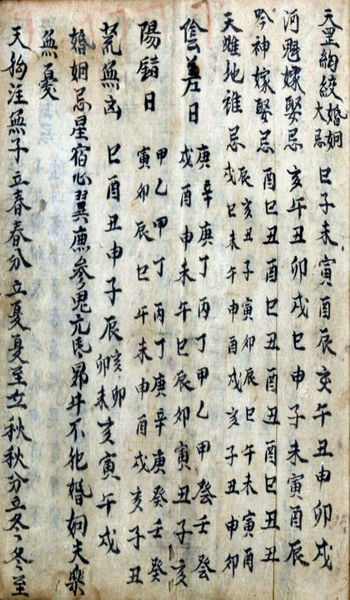 天罡鈎絞婚姻大忌 巳子未寅酉辰亥午丑申卯戌
河魁嫁娶忌 亥午丑卯戌巳申子未寅酉辰
吟神嫁娶忌 酉巳丑酉巳丑酉巳丑酉巳丑
天雄地雌忌 辰亥丑子寅卯辰巳午未寅酉
戌巳未午申酉戌亥子丑申卯
陰差日 庚辛庚丁丙丁甲乙甲癸壬癸
戌酉申未午巳辰卯寅丑子亥
陽錯日 甲乙甲丁丙丁庚辛庚癸壬癸
寅卯辰巳午未申酉戌亥子丑
荒無凶 巳酉丑申子辰亥卯未亥寅午戌
婚姻忌星宿心翼 參鬼亢氐昴斗不犯婚姻夫樂
無憂
天狗注無子立春春分立夏夏至立秋秋分立冬冬至